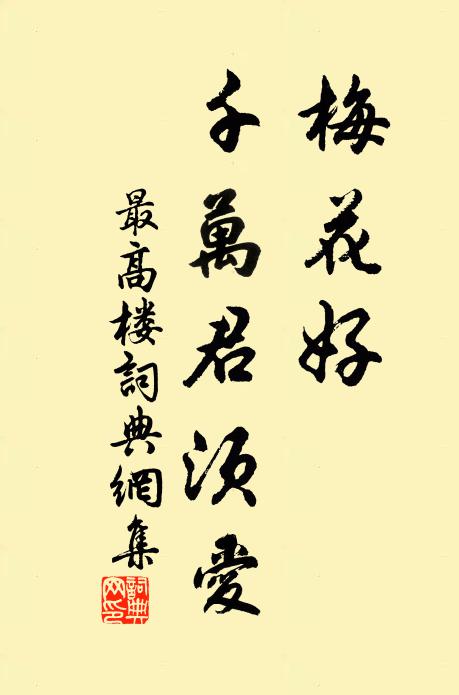 梅花好
千萬君須愛
最高楼詞典網集
詞典网印